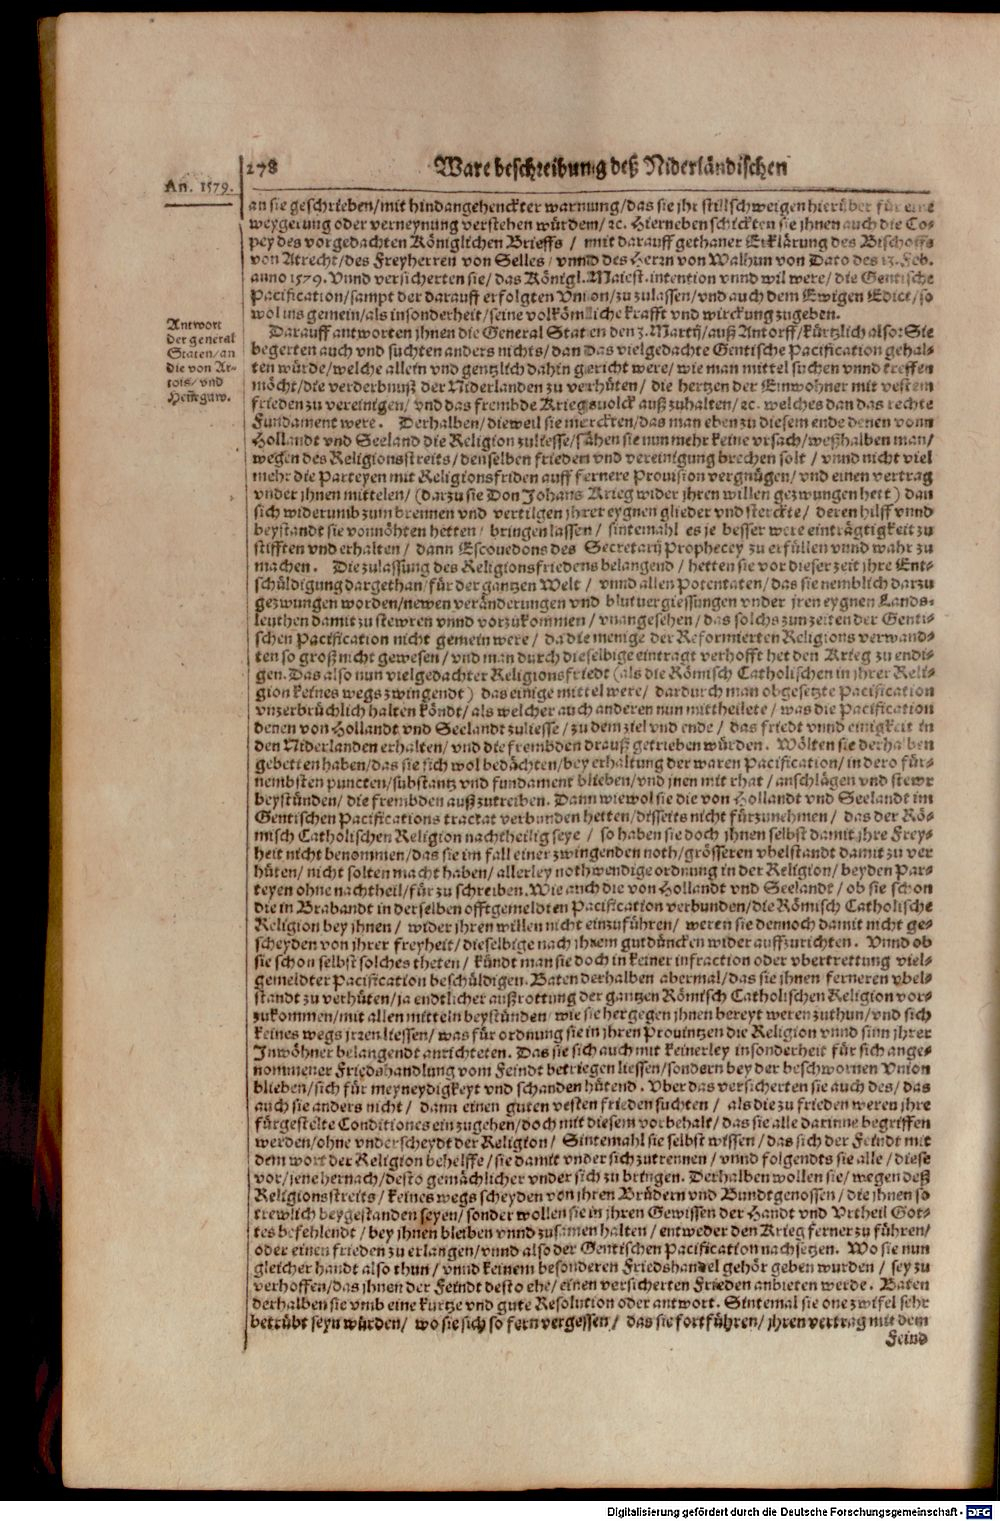 278 Ware beschreibung deß Niderländischen
An. 1579.
an sie geschrieben/mit hindangehenckter warnung/das sie jhr stillschweigen hierüber für eine
weygerung oder verneynung verstehen würdem/ ꝛc. Hierneben schickten sie jhnen auch die Co-
pey des vorgedachten Königlichen Brieffs / mit darauff gethaner Erklärung des Bischoffs
von Atrecht/des Freyherren von Selles/ vnnd des Herrn von Walhun von Dato des 13. Feb.
anno 1579. Vnnd versicherten sie/das Königl. Maiest. intention vnnd wil were/ die Gentische
Pacification/sampt der darauff erfolgten Vnion/zu zulassen/vnd auch dem Ewigen Edict/so
wol ins gemein/als insonderheit/seine volkömliche krafft vnd wirckung zugeben.
Antwort
der general
Staten/an
die von Ar-
tois/vnd
Hennguw.
Darauff antworten jhnen die General Staten den 3. Martij/auß Antorff/kürtzlich also: Sie
begerten auch vnd suchten anders nichts/dan das vielgedachte Gentische Pacification gehal-
ten würde/welche allein vnd gentzlich dahin gericht were/wie man mittel suchen vnnd treffen
möcht/die verderbnuß der Niderlanden zu verhüten/ die hertzen der Einwohner mit vestem
frieden zu vereinigen/ vnd das frembde Kriegsvolck auß zuhalten/ ꝛc. welches dan das rechte
Fundament were. Derhalben/dieweil sie merckten/das man eben zu diesem ende denen vonn
Hollandt vnd Seeland die Religion zuliesse/sähen sie nun mehr keine vrsach/weßhalben man/
wegen des Religionsstreits/denselben frieden vnd vereinigung brechen solt / vnnd nicht viel
mehr die Parteyen mit Religionsfriden auff fernere Provision vergnügen/vnd einen vertrag
vnder jhnen mittelen/ (darzu sie Don Johans Krieg wider jhren willen gezwungen hett) dan
sich widerumb zum brennen vnd vertilgen jhrer eygnen glieder vnd stercke/ deren hilff vnnd
beystandt sie vonnöhten hetten/ bringen lassen/ sintemahl es je besser were einträgtigkeit zu
stifften vnd erhalten/ dann Escouedons des Secretarij Prophecey zu erfüllen vnnd wahr zu
machen. Die zulassung des Religionsfriedens belangend/ hetten sie vor dieser zeit jhre Ent-
schüldigung dargethan/für der gantzen Welt / vnnd allen Potentaten/das sie nemblich darzu
gezwungen worden/newen veränderungen vnd blutvergiessungen vnder jren eygnen Lands-
leuthen damit zu stewren vnnd vorzukommen/ vnangesehen/das solchs zun zeiten der Genti-
schen Pacification nicht gemein were/ da die menige der Reformierten Religions verwand-
ten so groß nicht gewesen/vnd man durch dieselbige eintragt verhofft het den Krieg zu endi-
gen. Das also nun vielgedachter Religionsfriedt (als die Römisch Catholischen in jhrer Reli-
gion keines wegs zwingendt) das einige mittel were/ dardurch man obgesetzte Pacification
vnzerbrüchlich halten köndt/als welcher auch anderen nun mittheilete/was die Pacification
denen von Hollandt vnd Seelandt zuliesse/zu dem ziel vnd ende/ das friedt vnnd einigkeit in
den Niderlanden erhalten/vnd die frembden drauß getrieben würden. Wölten sie derhalben
gebetten haben/das sie sich wol bedächten/bey erhaltung der waren Pacification/in dero für-
nembsten puncten/substantz vnd fundament blieben/vnd jnen mit rhat/anschlägen vnd stewr
beystünden/die frembden auß zutreiben. Dann wiewol sie die von Hollandt vnd Seelandt im
Gentischen Pacifications tractat verbunden hetten/disseits nicht fürzunehmen/ das der Rö-
misch Catholischen Religion nachtheilig seye / so haben sie doch jhnen selbst damit jhre Frey-
heit nicht benommen/das sie im fall einer zwingenden noth/grösseren vbelstandt damit zu ver
hüten/ nicht solten macht haben/allerley nothwendige ordnung in der Religion/beyden Par-
teyen ohne nachtheil/für zu schreiben. Wie auch die von Hollandt vnd Seelandt/ ob sie schon
die in Brabandt in derselben offtgemeldten Pacification verbunden/die Römisch Catholische
Religion bey jhnen/ wider jhren willen nicht einzuführen/ weren sie dennoch damit nicht ge-
scheyden von jhrer freyheit/dieselbige nach jhrem gutdüncken wider auffzurichten. Vnnd ob
sie schon selbst solches theten/ kündt man sie doch in keiner infraction oder vbertrettung viel-
gemeldter Pacification beschüldigen. Baten derhalben abermal/das sie jhnen ferneren vbel-
standt zu verhüten/ja endtlicher außrottung der gantzen Römisch Catholischen Religion vor-
zukommen/mit allen mitteln beystünden/wie sie hergegen jhnen bereyt weren zuthun/vnd sich
keines wegs jrren liessen/was für ordnung sie in jhren Provintzen die Religion vnnd sinn jhrer
Jnwöhner belangendt anrichteten. Das sie sich auch mit keinerley insonderheit für sich ange-
nommener Friedshandlung vom Feindt betriegen liessen/sondern bey der beschwornen Vnion
blieben/sich für meyneydigkeyt vnd schanden hütend. Vber das versicherten sie auch des/das
auch sie anders nicht/ dann einen guten vesten frieden suchten/ als die zu frieden weren jhre
fürgestelte Conditiones ein zugehen/doch mit diesem vorbehalt/das sie alle darinne begriffen
werden/ohne vnderscheydt der Religion/ Sintemahl sie selbst wissen/das sich der Feindt mit
dem wort der Religion behelffe/sie damit vnder sich zutrennen/vnnd folgendts sie alle/diese
vor/jene hernach/desto gemächlicher vnder sich zu bringen. Derhalben wollen sie/wegen deß
Religionsstreits/keines wegs scheyden von jhren Brüdern vnd Bundtgenossen/die jhnen so
trewlich beygestanden seyen/sonder wollen sie in jhren Gewissen der Handt vnd Vrtheil Got-
tes befehlendt/bey jhnen bleiben vnnd zusamen halten/entweder den Krieg ferner zu führen/
oder einen frieden zu erlangen/vnnd also der Gentischen Pacification nachsetzen. Wo sie nun
gleicher handt also thun/vnnd keinem besonderen Friedshandel gehör geben wurden/sey zu
verhoffen/das jhnen der Feindt desto ehe/einen versicherten Frieden anbieten werde. Baten
derhalben sie vmb eine kurtze vnd gute Resolution oder antwort. Sintemal sie one zwifel sehr
betrübt seyn würden/ wo sie sich so fern vergessen/ das sie fortführen/jhren vertrag mit dem
Feind
Digitalisierung gefördert durch die Deutsche Forschungsgemeinschaft - DFG